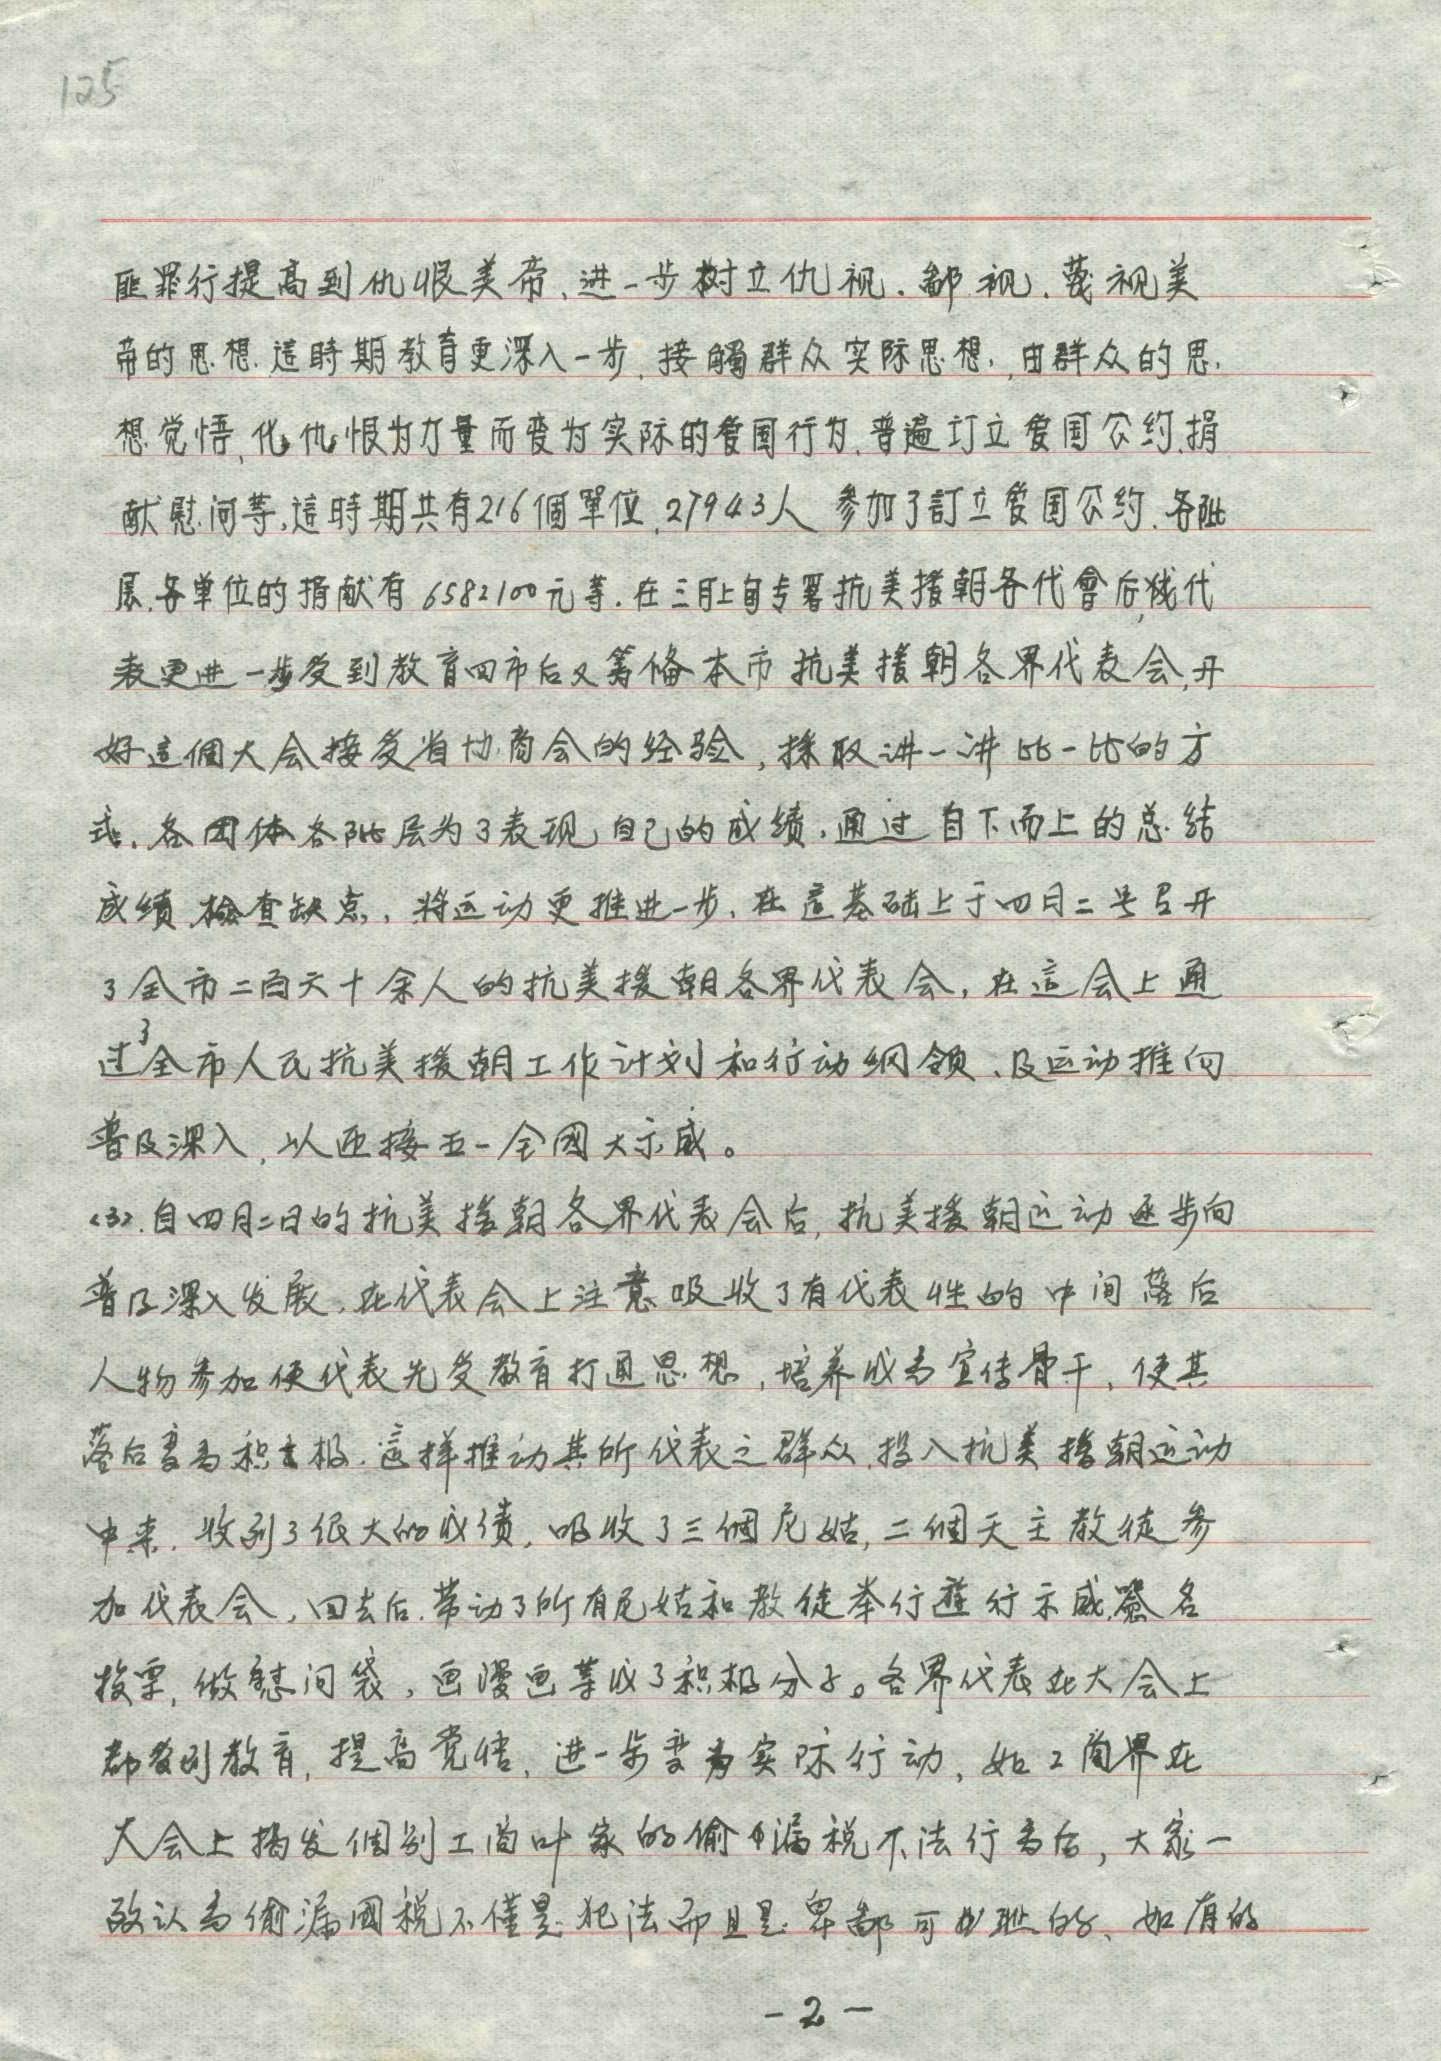 125
匪罪行提高到仇恨美帝、进一步树立仇视、鄙视、蔑视美
帝的思想.這時期教育更深入一步,接觸群众实际思想,由群众的思
想觉悟,化仇恨为力量而变为实际的爱国行为.普遍订立爱国公约.捐
献慰问等,這時期共有216個單位,27943人参加了訂立爱国公约.各阶
层.各单位的捐献有6582100元等.在三月上旬专署抗美援朝各代會后,代
表更进一步受到教育回市后又筹備本市抗美援朝各界代表会,开
好這個大会接受省协商会的经验,採取讲一讲比一比的方
式.各团体各阶层为了表现自己的成绩.通过自下而上的总结
成绩检查缺点,将运动更推进一步.在這基础上于四月二号召开
了全市二百六十余人的抗美援朝各界代表会,在這会上通
过了全市人民抗美援朝工作计划和行动纲领、及运动推向
普及深入,以迎接五一全國大示威。
<3>.自四月二日的抗美援朝各界代表会后,抗美援朝运动逐步向
普及深入发展.在代表会上注意吸收了有代表性的中间落后
人物参加使代表先受教育打通思想,培养成为宣传骨干,使其
落后变为积极.這样推动其所代表之群众.投入抗美援朝运动
中来.收到了很大的成绩.吸收了三個尼姑,二個天主教徒参
加代表会,回去后.带动了所有尼姑和教徒举行遊行示威.簽名
投票,做慰问袋,画漫画等成了积极分子。各界代表在大会上
都受到教育,提高觉悟,进一步变为实际行动,如工商界在
大会上揭发個别工商叶家的偷漏税不法行为后,大家一
致认为偷漏國税不僅是犯法而且是卑鄙可耻的、如有的
-2-